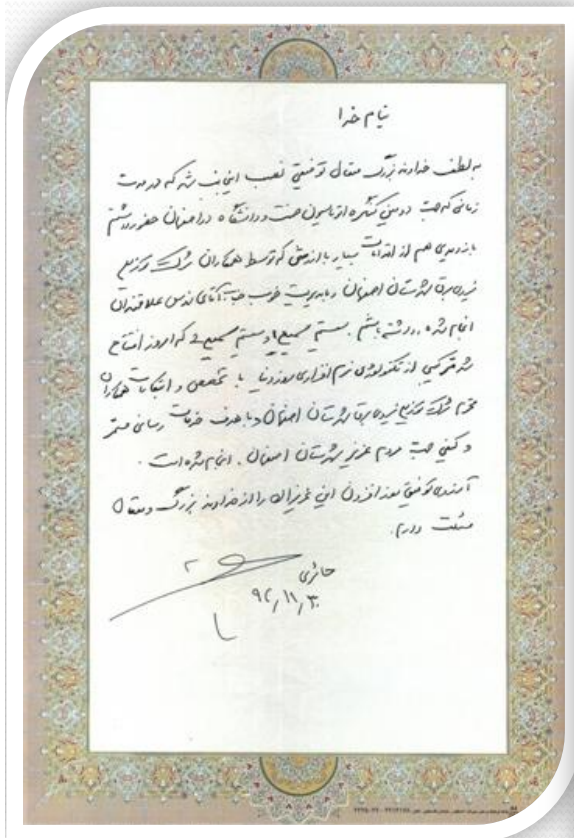 بنام خدا
به لطف خداوند بزرگ و متعال توفیقی نصیب اینجانب شد که در مدت
زمانی که جهت دومین کنگره اتوماسیون صنعت و دانشگاه در اصفهان حضور داشتم
بازدیدی هم از اقدامات بسیار با ارزشی که توسط همکاران شرکت توزیع
نیروی برق شهرستان اصفهان و با مدیریت خوب جناب آقای مهندس علاقمندان
انجام شده، داشته باشم. سیستم سمیع 1 و سیستم سمیع 2 که امروز افتتاح
شد ترکیبی از تکنولوژی نرم افزاری روز دنیا با تخصص و ابتکارات همکاران
محترم شرکت توزیع نیروی برق شهرستان اصفهان و با هدف خدمات رسانی مستمر
و کیفی جهت مردم عزیز شهرستان اصفهان، انجام شده است.
آرزوی توفیق روز افزون این عزیزان را از خداوند بزرگ و متعال
مسئلت دارم.
حائری
۹۲/۱۱/۳۰